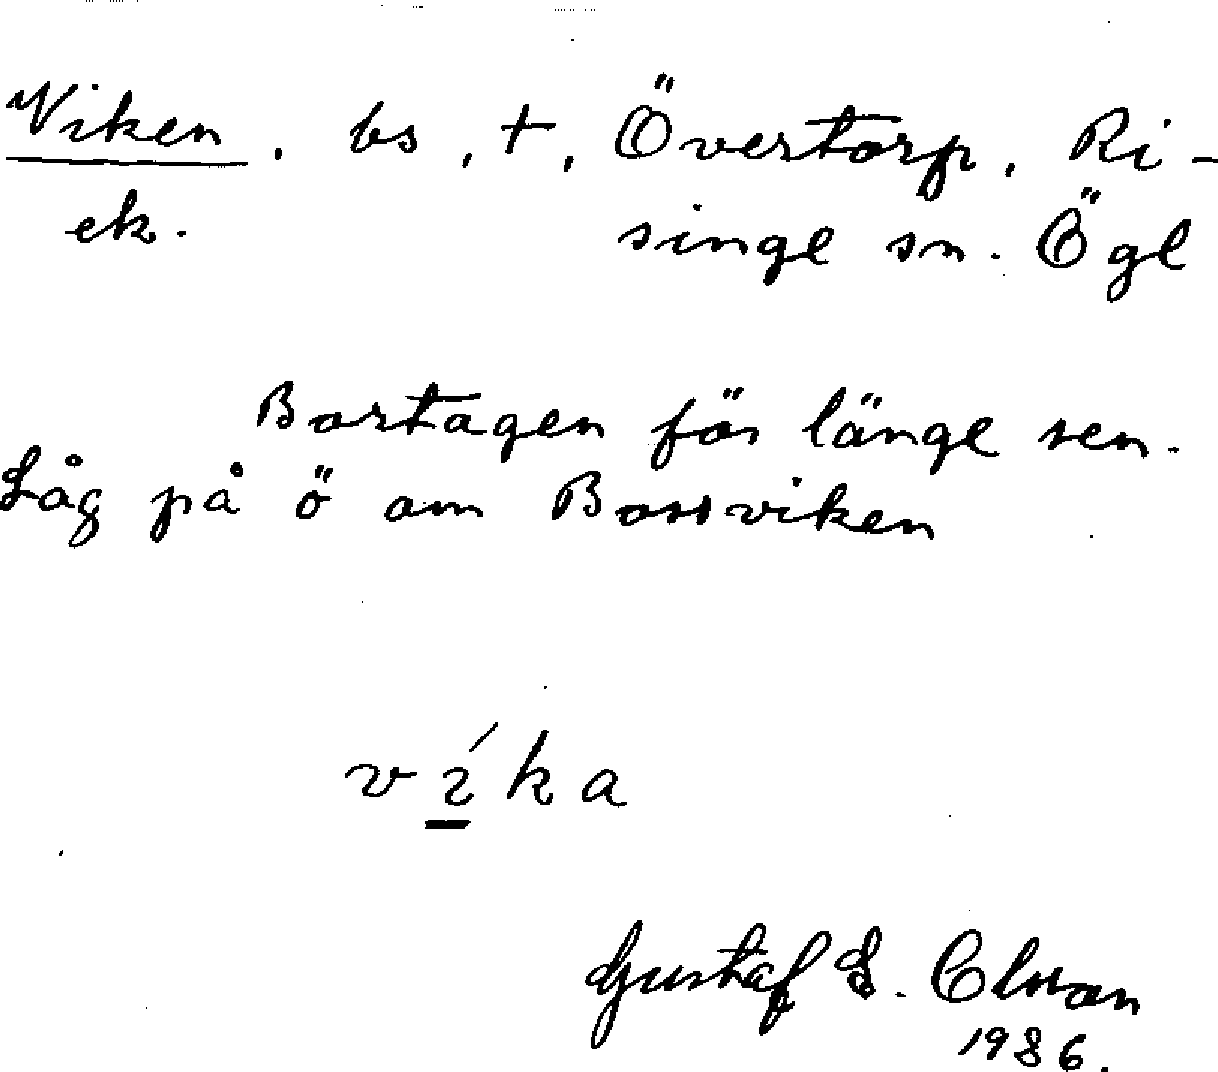 Viken, bs, †, Övertorp, Ri-
ek. singe sn. Ögl
Bortagen för länge sen.
Låg på ö om Bossviken
víka
Gustaf E. Olsson
1986.